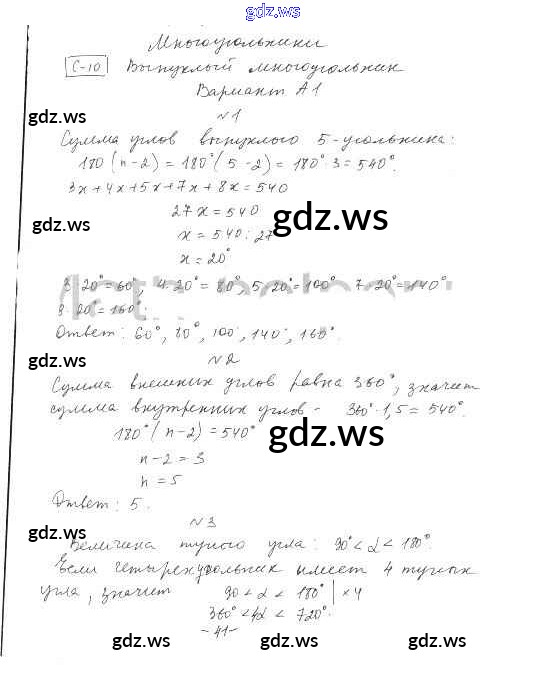 gdz.ws
Многоугольники
С-10 Выпуклый многоугольник
Вариант А1
gdz.ws gdz.ws
№1
Сумма углов выпуклого 5-угольника:
180(n-2) = 180°(5-2) = 180°·3 = 540°.
3x+4x+5x+7x+8x = 540
27x = 540
gdz.ws gdz.ws
x = 540:27
x = 20°
3·20° = 60°; 4·20° = 80°; 5·20° = 100° 7·20° = 140°
8·20° = 160°.
Ответ: 60°, 80°, 100°, 140°, 160°.
gdz.ws gdz.ws
№2
Сумма внешних углов равна 360°, значит
сумма внутренних углов - 360°·1,5 = 540°.
180°(n-2) = 540°
gdz.ws
n-2 = 3
n = 5
Ответ: 5.
№3
gdz.ws gdz.ws
Величина тупого угла: 90° < α < 180°.
Если четырехугольник имеет 4 тупых
угла, значит 90 < α < 180° | ×4
360° < 4α < 720°.
-41-
gdz.ws gdz.ws gdz.ws